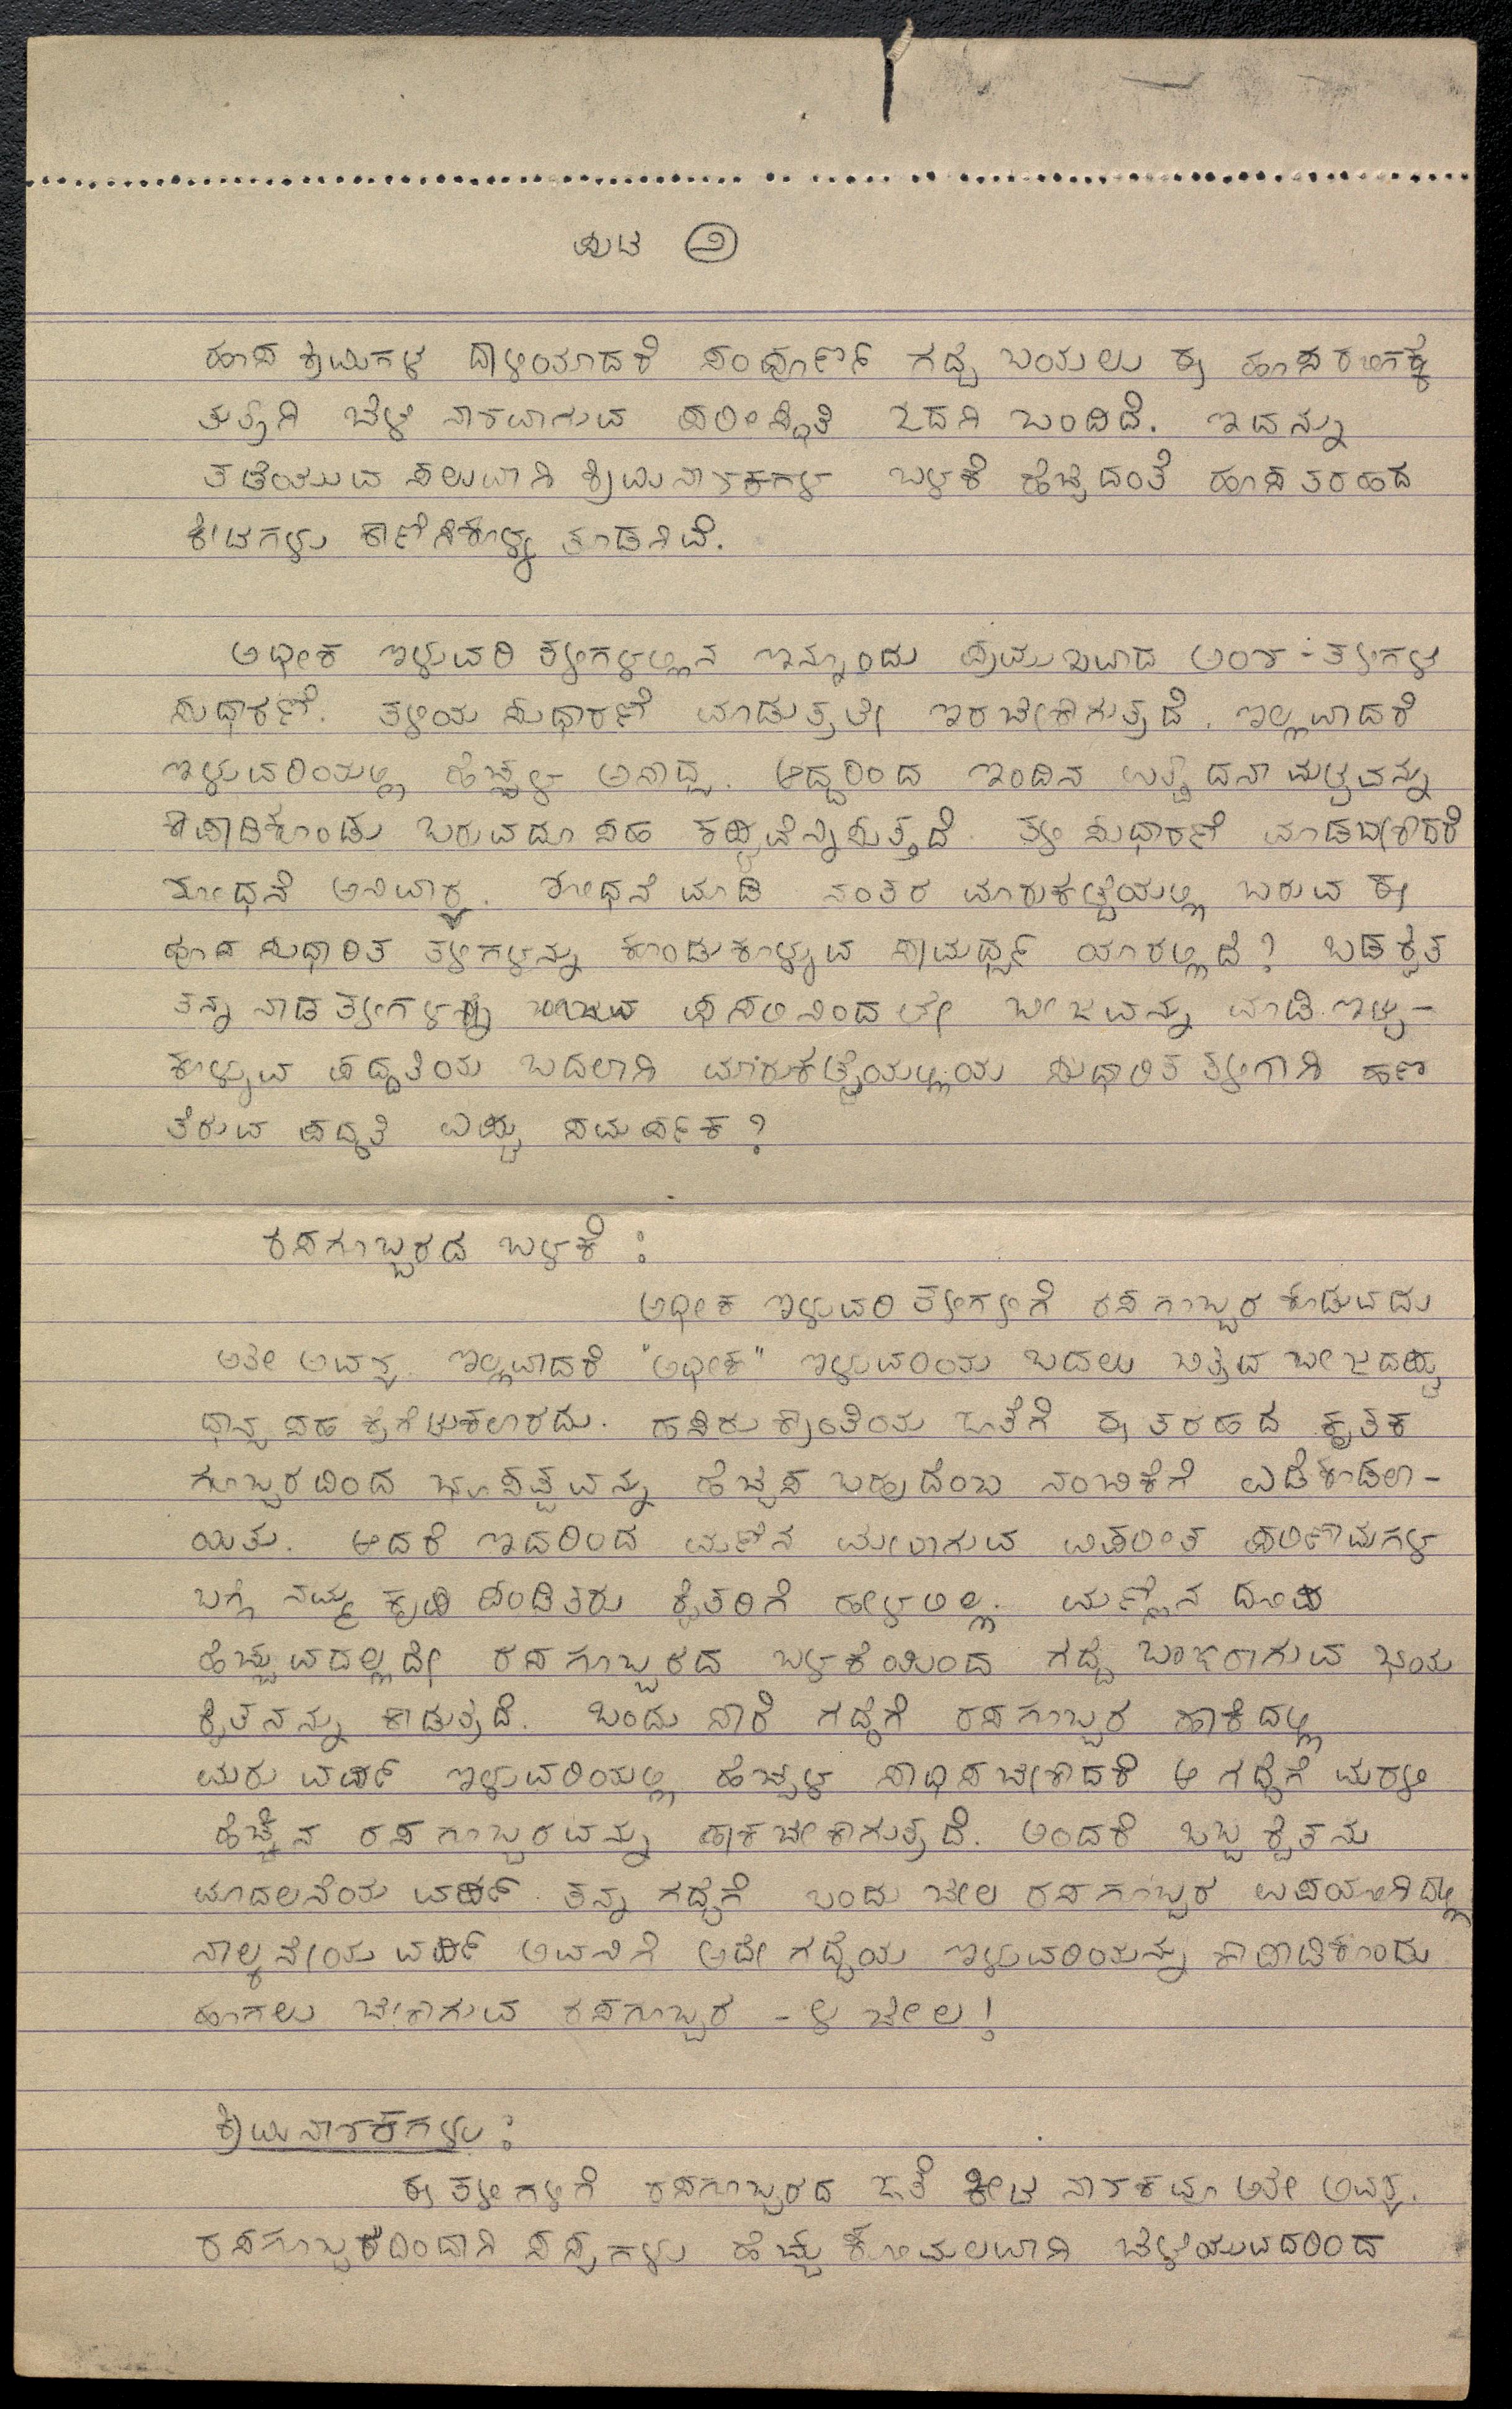 ಪುಟ ೨
ಹೊಸ ಕ್ರಿಮಿಗಳ ದಾಳಿಯಾದರೆ ಸಂಪೂರ್ಣ ಗದ್ದೆ ಬಯಲು ಈ ಹೊಸ ರೋಗಕ್ಕೆ
ತುತ್ತಾಗಿ ಬೆಳೆ ನಾಶವಾಗುವ ಪರೀಸ್ಥಿತಿ ಒದಗಿ ಬಂದಿದೆ. ಇದನ್ನು
ತಡೆಯುವ ಸಲುವಾಗಿ ಕ್ರಿಮಿನಾಶಕಗಳ ಬಳಕೆ ಹೆಚ್ಚಿದಂತೆ ಹೊಸ ತರಹದ
ಕೀಟಗಳು ಕಾಣಿಸಿಕೊಳ್ಳ ತೊಡಗಿವೆ.
ಅಧೀಕ ಇಳುವರಿ ತಳಿಗಳಲ್ಲಿನ ಇನ್ನೊಂದು ಪ್ರಮುಖವಾದ ಅಂಶ - ತಳಿಗಳ
ಸುಧಾರಣೆ. ತಳಿಯ ಸುಧಾರಣೆ ಮಾಡುತ್ತಲೇ ಇರಬೇಕಾಗುತ್ತದೆ. ಇಲ್ಲವಾದರೆ
ಇಳುವರಿಯಲ್ಲಿ ಹೆಚ್ಚಳ ಅಸಾಧ್ಯ. ಆದ್ದರಿಂದ ಇಂದಿನ ಉತ್ಪಾದನಾ ಮಟ್ಟವನ್ನು
ಕಾಪಾಡಿಕೊಂಡು ಬರುವದೂ ಸಹ ಕಷ್ಟವೆನ್ನಿಸುತ್ತದೆ. ತಳಿ ಸುಧಾರಣೆ ಮಾಡಬೇಕಾದರೆ
ಶೋಧನೆ ಅನಿವಾರ್ಯ. ಶೋಧನೆ ಮಾಡಿ ನಂತರ ಮಾರುಕಟ್ಟೆಯಲ್ಲಿ ಬರುವ ಈ
ಹೊಸ ಸುಧಾರಿತ ತಳಿಗಳನ್ನು ಕೊಂಡುಕೊಳ್ಳುವ ಸಾಮರ್ಥ್ಯ ಯಾರಲ್ಲಿದೆ? ಬಡ ರೈತ
ತನ್ನ ನಾಡ ತಳಿಗಳನ್ನು ಫಸಲಿನಿಂದಲೇ ಬೀಜವನ್ನು ಮಾಡಿ ಇಟ್ಟು-
ಕೊಳ್ಳುವ ಪದ್ಧತಿಯ ಬದಲಾಗಿ ಮಾರುಕಟ್ಟೆಯಲ್ಲಿಯ ಸುಧಾರಿತ ತಳಿಗಾಗಿ ಹಣ
ತೆರುವ ಪದ್ಧತಿ ಎಷ್ಟು ಸಮರ್ಪಕ?
ರಸಗೊಬ್ಬರದ ಬಳಕೆ :
ಅಧೀಕ ಇಳುವರಿ ತಳಿಗಳಿಗೆ ರಸಗೊಬ್ಬರ ಕೊಡುವದು
ಅತೀ ಅವಶ್ಯ. ಇಲ್ಲವಾದರೆ "ಅಧೀಕ" ಇಳುವರಿಯ ಬದಲು ಬಿತ್ತಿದ ಬೀಜದಷ್ಟು
ಧಾನ್ಯ ಸಹ ಕೈಗೆಟುಕಲಾರದು. ಹಸಿರು ಕ್ರಾಂತಿಯ ಜತೆಗೆ ಈ ತರಹದ ಕೃತಕ
ಗೊಬ್ಬರದಿಂದ ಭೂಸತ್ವವನ್ನು ಹೆಚ್ಚಿಸ ಬಹುದೆಂಬ ನಂಬಿಕೆಗೆ ಎಡೆಕೊಡಲಾ-
ಯಿತು. ಆದರೆ ಇದರಿಂದ ಮಣ್ಣಿನ ಮೇಲಾಗುವ ವಿಪರೀತ ಪರಿಣಾಮಗಳ
ಬಗ್ಗೆ ನಮ್ಮ ಕೃಷಿ ಪಂಡಿತರು ರೈತರಿಗೆ ಹೇಳಲಿಲ್ಲ. ಮಣ್ಣಿನ ದೋಷ
ಹೆಚ್ಚುವದಲ್ಲದೇ ರಸಗೊಬ್ಬರದ ಬಳಕೆಯಿಂದ ಗದ್ದೆ ಬಂಜರಾಗುವ ಭಯ
ರೈತನನ್ನು ಕಾಡುತ್ತದೆ. ಒಂದು ಸಾರೆ ಗದ್ದೆಗೆ ರಸಗೊಬ್ಬರ ಹಾಕಿದಲ್ಲಿ
ಮರು ವರ್ಷ ಇಳುವರಿಯಲ್ಲಿ ಹೆಚ್ಚಳ ಸಾಧಿಸಬೇಕಾದರೆ ಆ ಗದ್ದೆಗೆ ಮರಳಿ
ಹೆಚ್ಚಿನ ರಸಗೊಬ್ಬರವನ್ನು ಹಾಕಬೇಕಾಗುತ್ತದೆ. ಅಂದರೆ ಒಬ್ಬ ರೈತನು
ಮೊದಲನೆಯ ವರ್ಷ ತನ್ನ ಗದ್ದೆಗೆ ಒಂದು ಚೀಲ ರಸಗೊಬ್ಬರ ಉಪಯೋಗಿಸಿದಲ್ಲಿ
ನಾಲ್ಕನೇಯ ವರ್ಷ ಅವನಿಗೆ ಅದೇ ಗದ್ದೆಯ ಇಳುವರಿಯನ್ನು ಕಾಪಾಡಿಕೊಂಡು
ಹೋಗಲು ಬೇಕಾಗುವ ರಸಗೊಬ್ಬರ - ೪ ಚೀಲ!
ಕ್ರಿಮಿನಾಶಕಗಳು :
ಈ ತಳಿಗಳಿಗೆ ರಸಗೊಬ್ಬರದ ಜತೆ ಕೀಟ ನಾಶಕವೂ ಅತೀ ಅವಶ್ಯ.
ರಸಗೊಬ್ಬರದಿಂದಾಗಿ ಸಸ್ಯಗಳು ಹೆಚ್ಚು ಕೋಮಲವಾಗಿ ಬೆಳೆಯುವದರಿಂದ